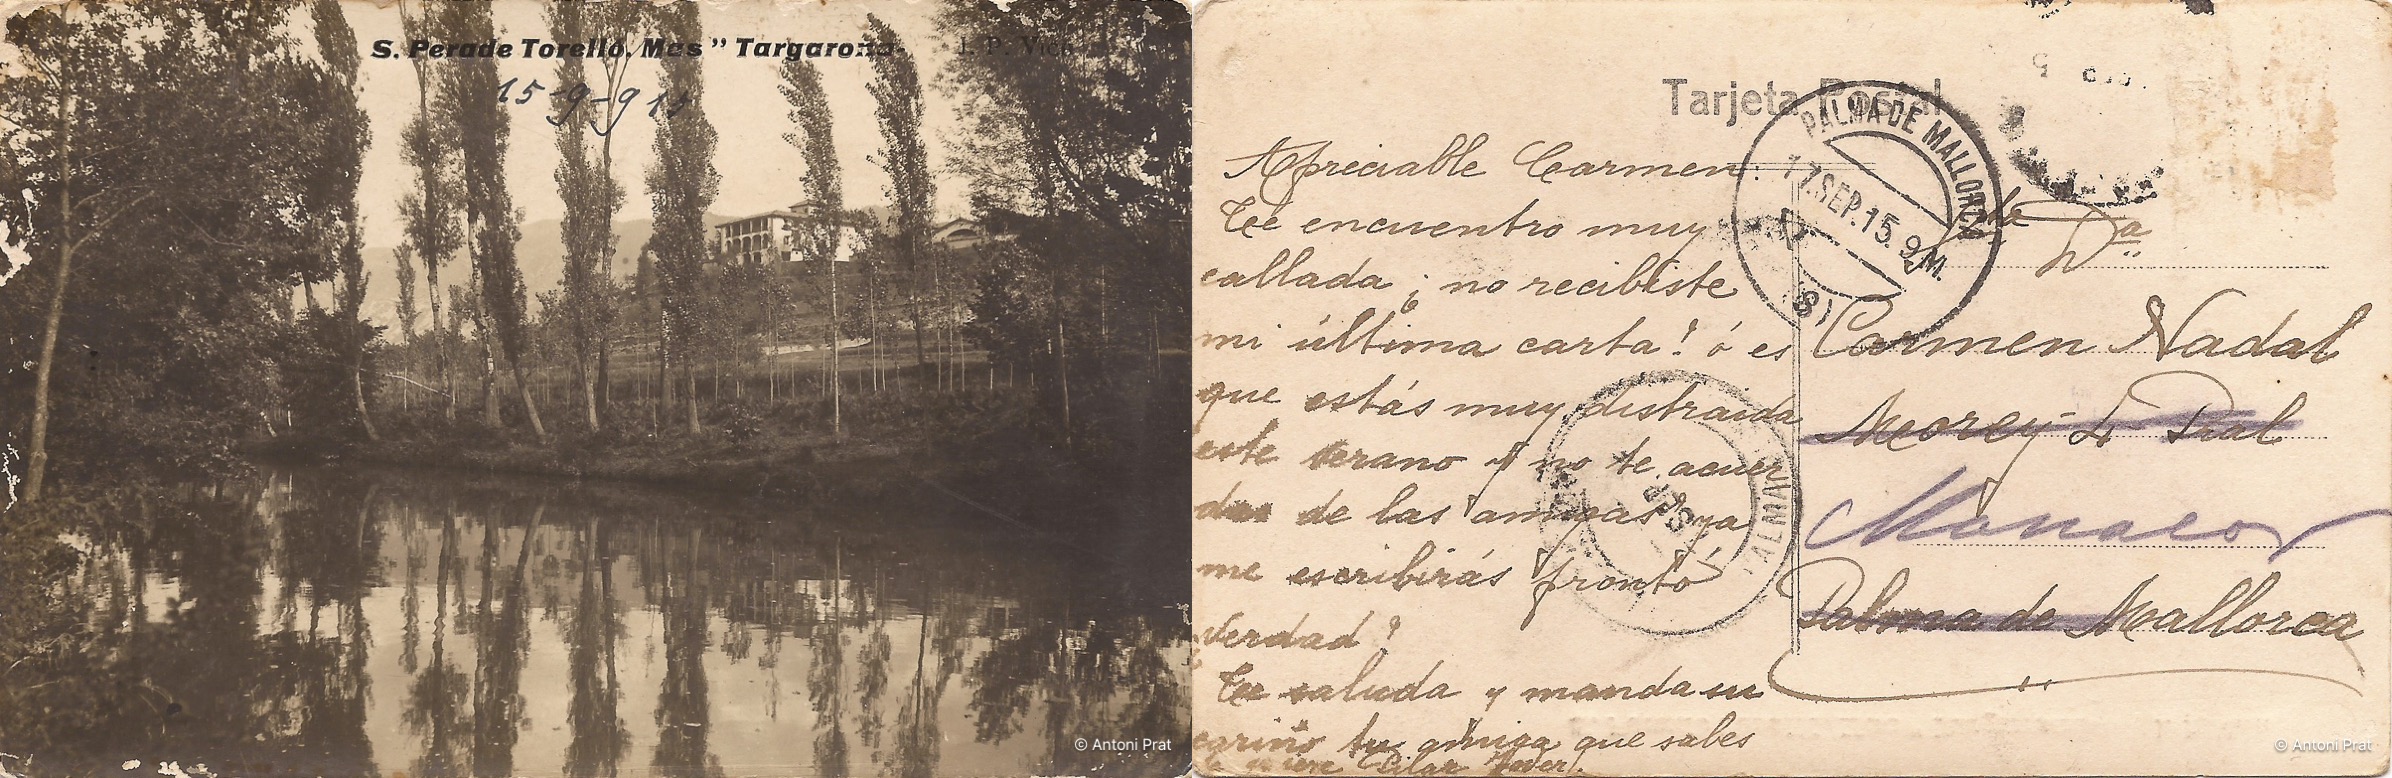 S. Pera de Torelló. Mas " Targarona-
J. P. Vich
15-9-915
© Antoni Prat
Tarjeta Postal
PALMA DE MALLORCA
17.SEP.15.9M.
Apreciable Carmen:
Te encuentro muy
callada ¿no recibiste
mi última carta? ó es
que estás muy distraida
este verano y no te acuer
das de las amigas ya
me escribirás pronto
¿Verdad?
Te saluda y manda su
cariño tu amiga que sabes
te quiere Pilar
Sta Da
Carmen Nadal
Morey 4 Pral
Manacor
Palma de Mallorca
PALMA
© Antoni Prat